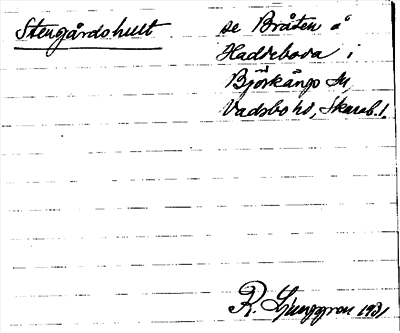 Stengårdshult se Bråten å
Haddeboda i
Björkängs sn,
Vadsbo hd, Skarab. l.
R. Ljunggren 1931